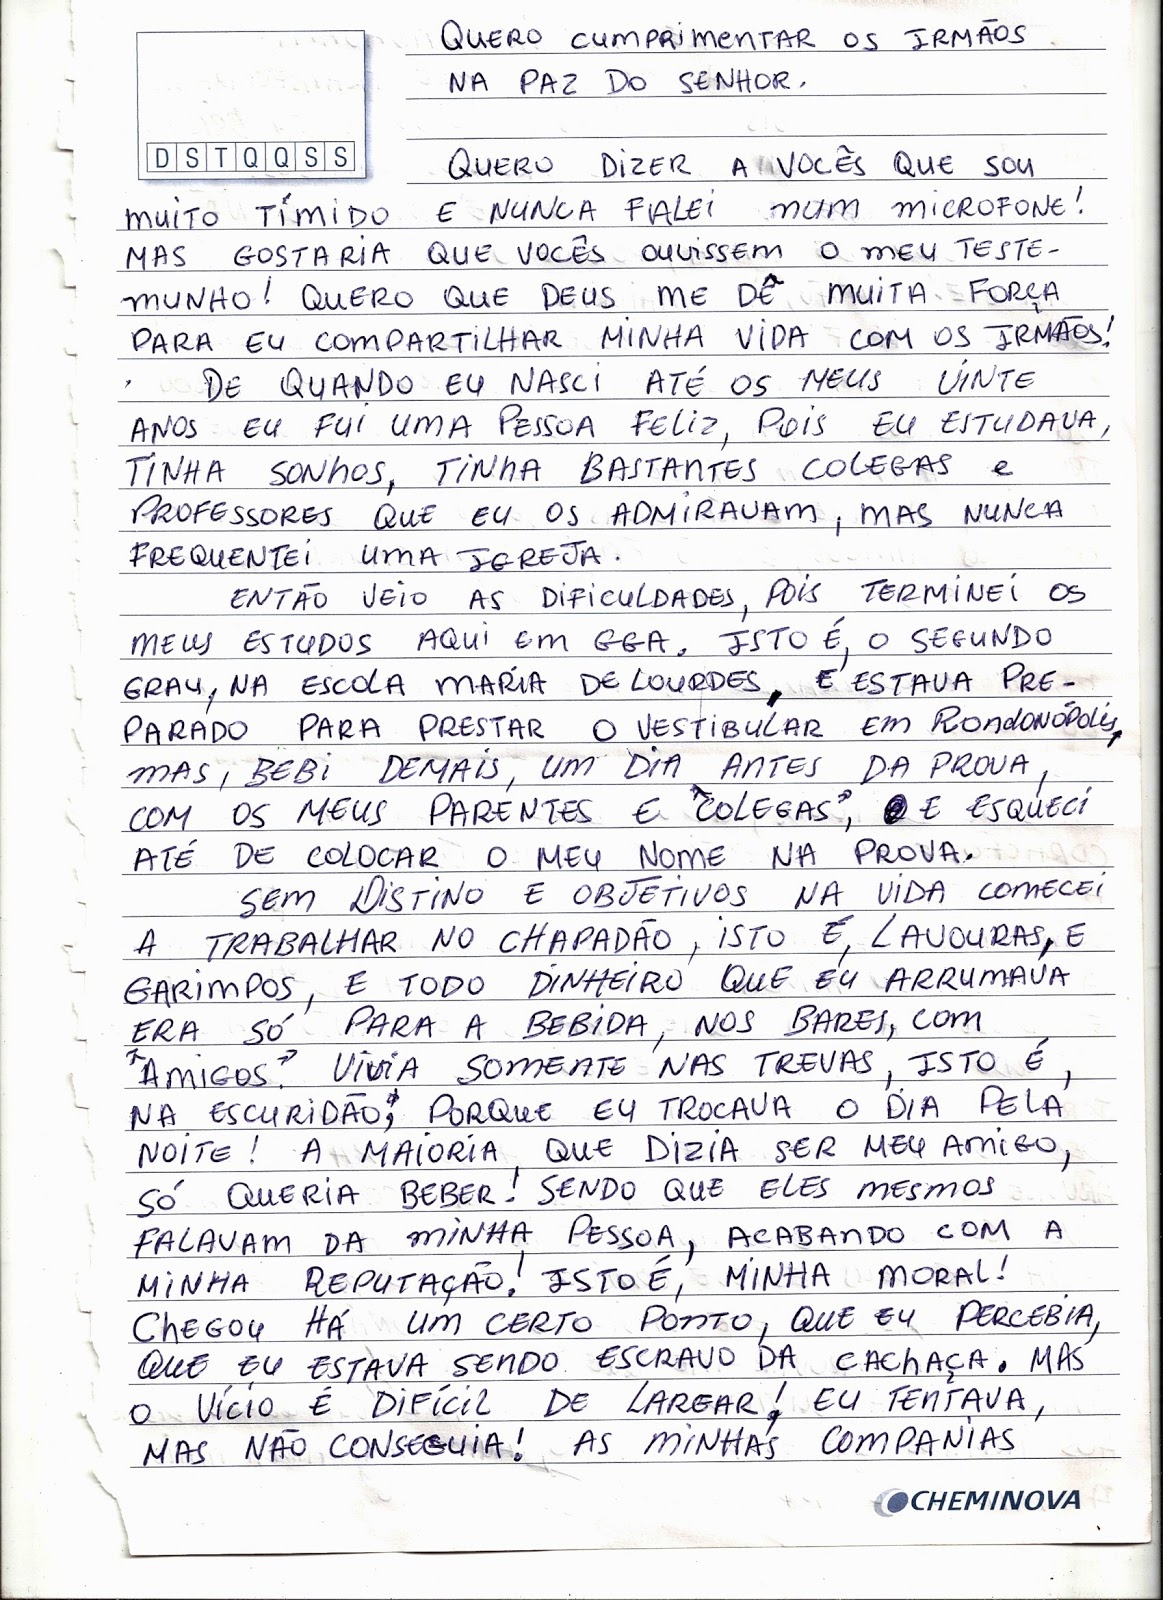 QUERO CUMPRIMENTAR OS IRMÃOS
NA PAZ DO SENHOR.
D S T Q Q S S
QUERO DIZER A VOCÊS QUE SOU
MUITO TÍMIDO E NUNCA FALEI NUM MICROFONE!
MAS GOSTARIA QUE VOCÊS OUVISSEM O MEU TESTE-
MUNHO! QUERO QUE DEUS ME DÊ MUITA FORÇA
PARA EU COMPARTILHAR MINHA VIDA COM OS IRMÃOS!
DE QUANDO EU NASCI ATÉ OS MEUS VINTE
ANOS EU FUI UMA PESSOA FELIZ, POIS EU ESTUDAVA,
TINHA SONHOS, TINHA BASTANTES COLEGAS E
PROFESSORES QUE EU OS ADMIRAVAM, MAS NUNCA
FREQUENTEI UMA IGREJA.
ENTÃO VEIO AS DIFICULDADES, POIS TERMINEI OS
MEUS ESTUDOS AQUI EM GGA. ISTO É, O SEGUNDO
GRAU, NA ESCOLA MARIA DE LOURDES, E ESTAVA PRE-
PARADO PARA PRESTAR O VESTIBULAR EM RONDONÓPOLIS,
MAS, BEBI DEMAIS, UM DIA ANTES DA PROVA,
COM OS MEUS PARENTES E "COLEGAS", E ESQUECI
ATÉ DE COLOCAR O MEU NOME NA PROVA.
SEM DISTINO E OBJETIVOS NA VIDA COMECEI
A TRABALHAR NO CHAPADÃO, ISTO É, LAVOURAS, E
GARIMPOS, E TODO DINHEIRO QUE EU ARRUMAVA
ERA SÓ PARA A BEBIDA, NOS BARES, COM
"AMIGOS". VIVIA SOMENTE NAS TREVAS, ISTO É,
NA ESCURIDÃO; PORQUE EU TROCAVA O DIA PELA
NOITE! A MAIORIA, QUE DIZIA SER MEU AMIGO,
SÓ QUERIA BEBER! SENDO QUE ELES MESMOS
FALAVAM DA MINHA PESSOA, ACABANDO COM A
MINHA REPUTAÇÃO! ISTO É, MINHA MORAL!
CHEGOU HÁ UM CERTO PONTO, QUE EU PERCEBIA,
QUE EU ESTAVA SENDO ESCRAVO DA CACHAÇA. MAS
O VÍCIO É DIFÍCIL DE LARGAR! EU TENTAVA,
MAS NÃO CONSEGUIA! AS MINHAS COMPANIAS
CHEMINOVA